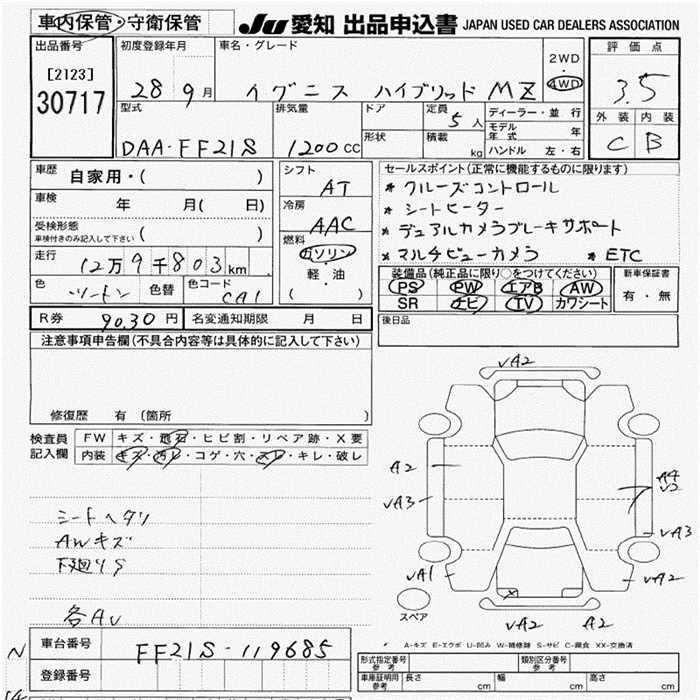 車内保管・守衛保管
JU 愛知 出品申込書 JAPAN USED CAR DEALERS ASSOCIATION
出品番号
[2123]
30717
初度登録年月
28 9月
車名・グレード
イグニス ハイブリッド MZ
2WD
・
4WD
評価点
3.5
外装 内装
C B
型式
DAA-FF21S
排気量
1200 CC
ドア
形状
定員
5人
積載
kg
ディーラー・並行
モデル年式 年
ハンドル 左・右
車歴
自家用・( )
車検
年 月( 日)
受検形態
車検付きのみ記入して下さい ( )
走行
12万9千803km
色
ツートン
色替
色コード
CA1
シフト
AT
冷房
AAC
燃料
ガソリン
・
軽・油
( )
セールスポイント(正常に機能するものに限ります)
* クルーズコントロール
* シートヒーター
* デュアルカメラブレーキサポート
* マルチビューカメラ * ETC
装備品(純正品に限り○をつけてください)
PS PW エアB AW
SR ナビ TV カワシート
新車保証書
有・無
R券 9030円 名変通知期限 月 日
後日品
注意事項申告欄(不具合内容等は具体的に記入して下さい)
修復歴 有 (箇所 )
検査員
記入欄
FW キズ・飛石・ヒビ割・リペア跡・X要
内装 キズ・汚レ・コゲ・穴・スレ・キレ・破レ
シートヘタリ
AWキズ
下廻りS
各AU
√A2
A2
√A3
A4
√2
√A3
√A1
√A2
√A2
A2
X
スペア
A-キズ E-エクボ U-凹み W-補修跡 S-サビ C-腐食 X X-交換済
N
車台番号
FF21S-119685
登録番号
形式指定番号
参考
類別区分番号
参考
車庫証明用
参考
長さ cm 幅 cm 高さ cm